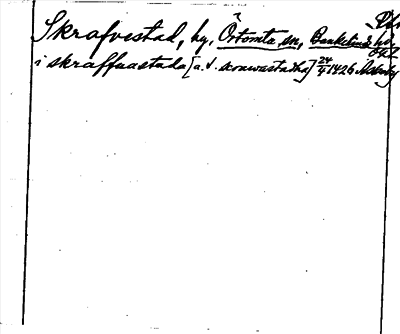 Skrafvestad, hg, Örtomta sn, Bankekinds hd
ÖGL
i skraffuastada [a.d. scrawastadha] 24/4 1426